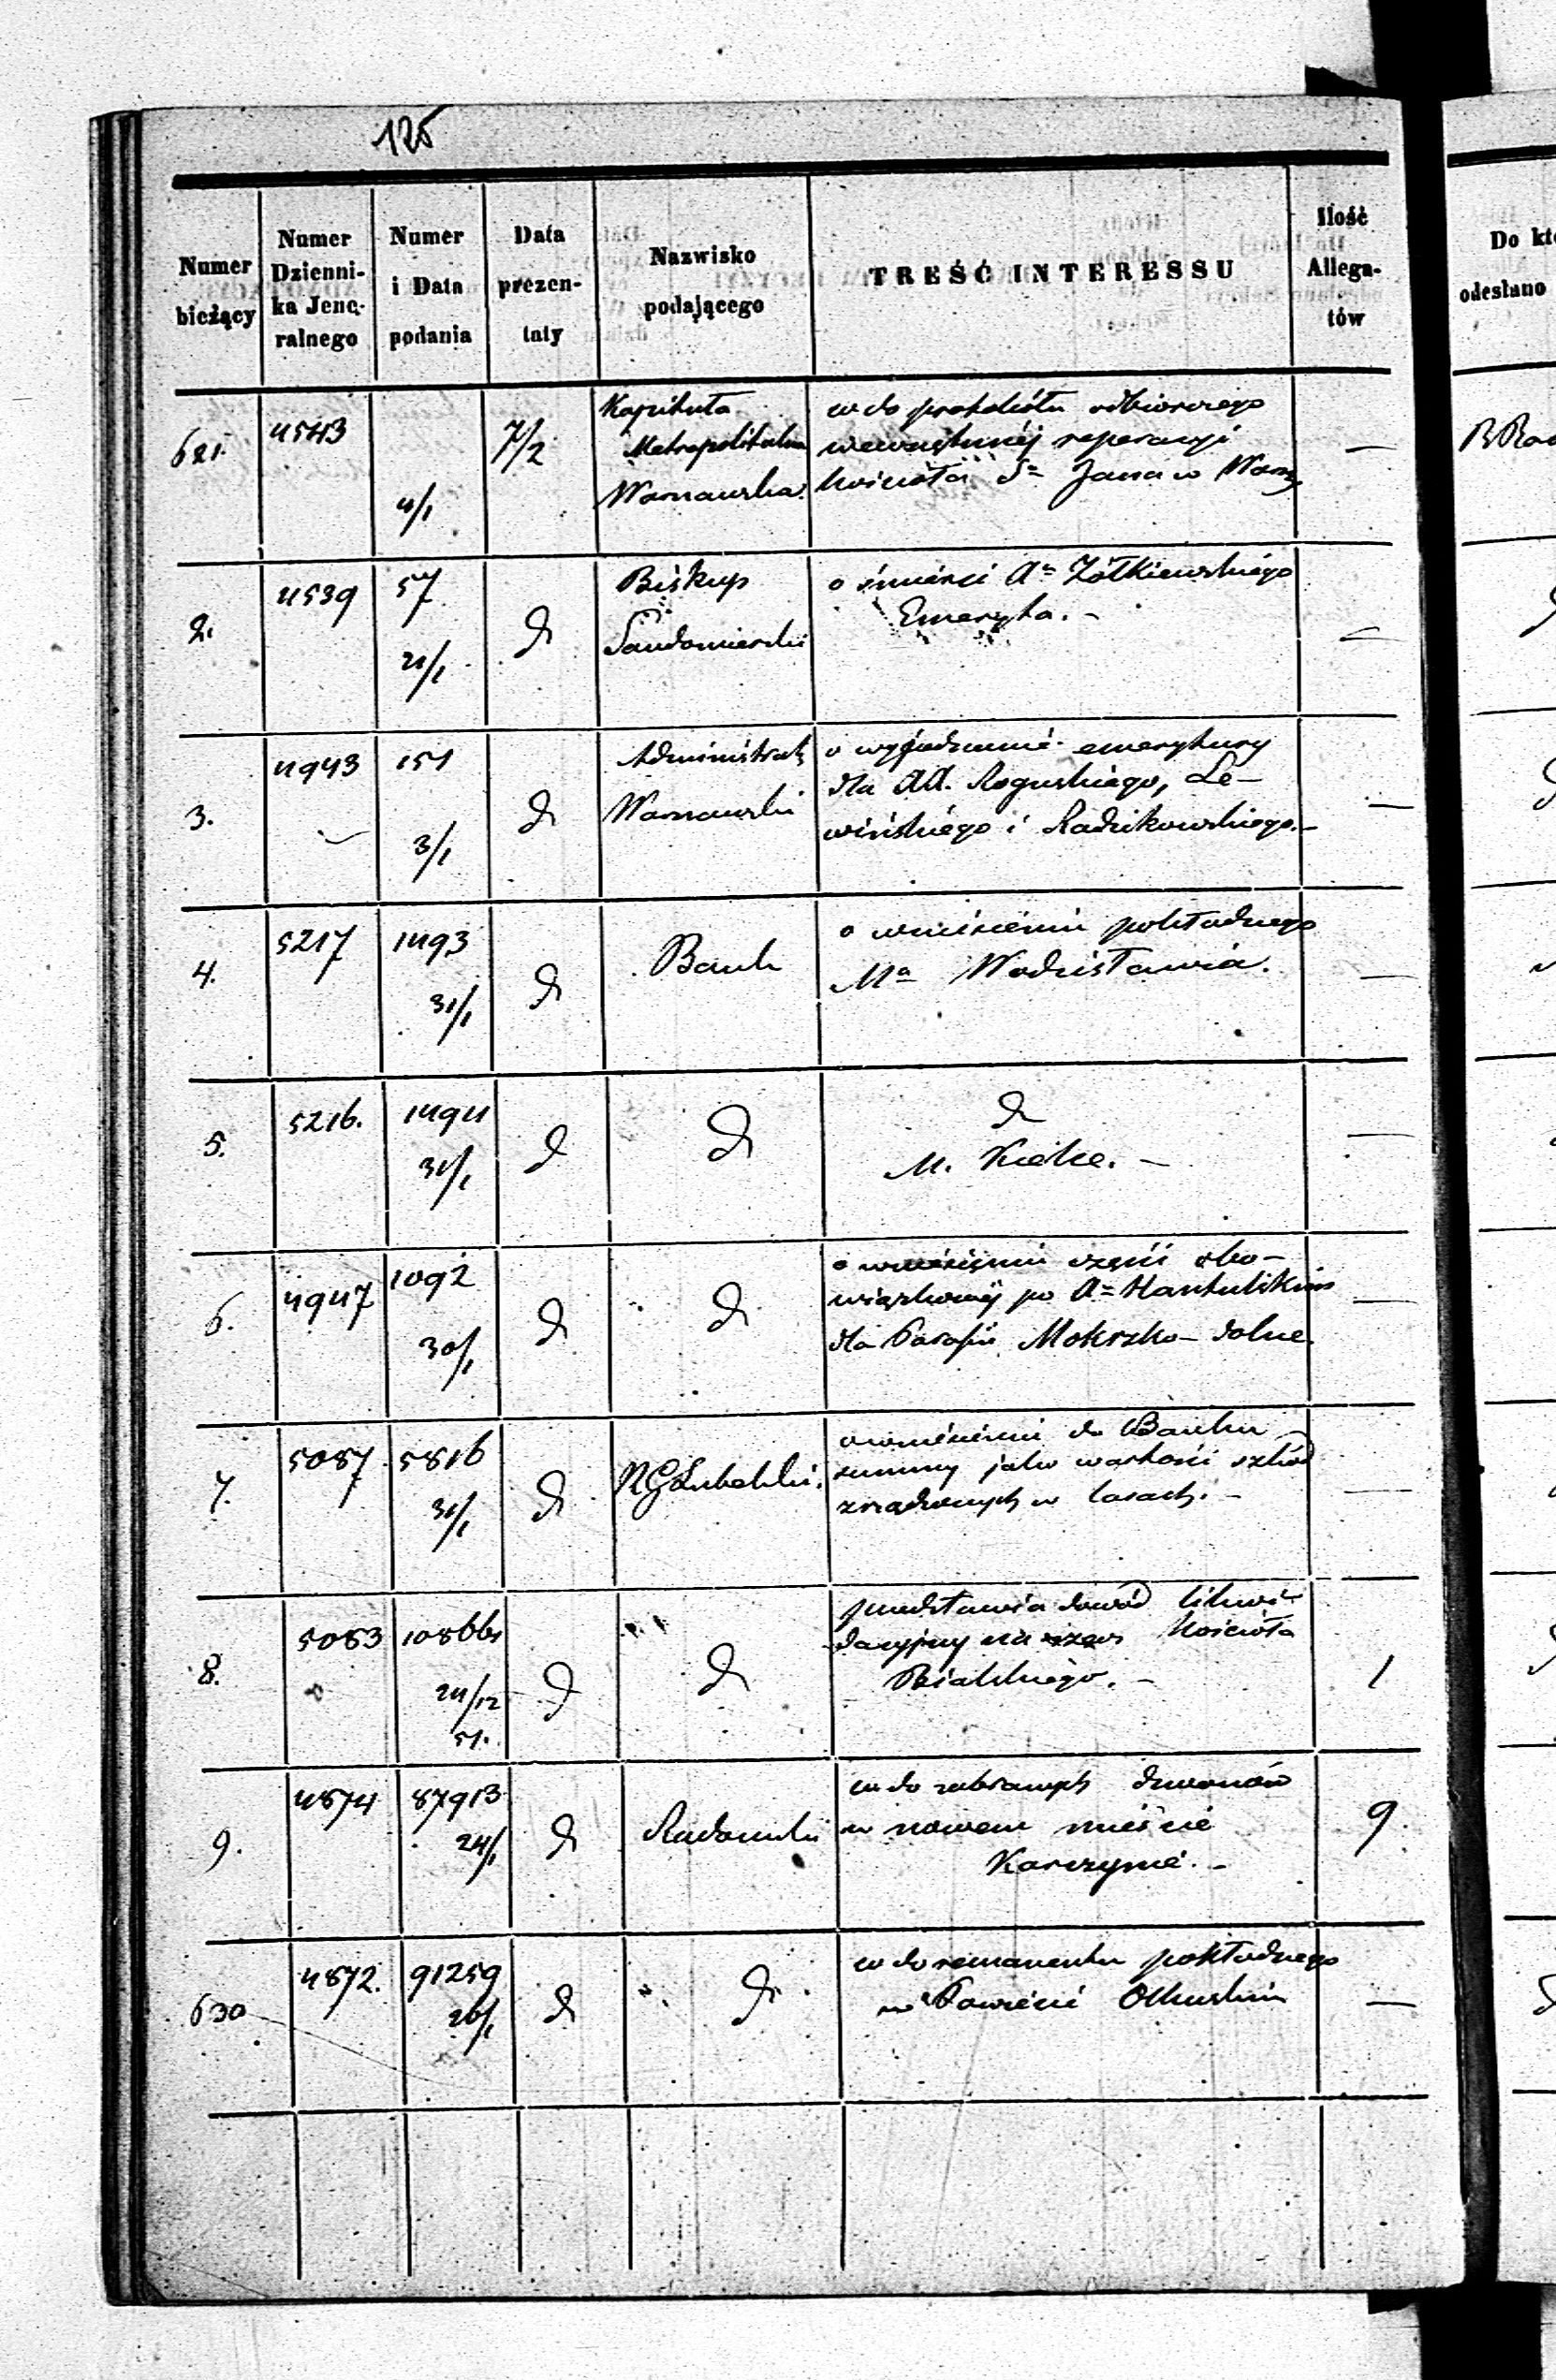 125
Numer bieżący | Numer Dziennika Jeneralnego | Numer i Data podania | Data prezentaty | Nazwisko podającego | TREŚĆ INTERESSU | Ilość Allegatów | Do kt
odesłano
621. | 4543 | 4/1 | 7/2 | Kapituła
Metropolitalna
Warszawska. | w do protokółu odbiorczego
wewnętrznéj reperacyi
kościoła Sgo Jana w Warsz | —
2. | 4539 | 57
21/1 | d | Biskup
Sandomierski | o śmierci Xa Żółkiewskiego
Emeryta. — | —
3. | 4943 | 151
3/1 | d | Administrat
Warszawski | o wyjednanie emerytury
dla XX. Roguskiego, Le-
wińskiego i Radzikowskiego. — | —
4. | 5217 | 1493
31/1 | d | Bank | o wniesieniu pokładnego
Ma Wodzisławia. | —
5. | 5216. | 1494
31/1 | d | d | d
M. Kielce. — | —
6. | 4947 | 1092
30/1 | d | d | o wniesieniu części obo-
wiązkowéj po Xu
dla Parafii Mokrsko-dolne. | —
7. | 5087 | 5816
31/1 | d | RG Lubelski. | o wniesieniu do Banku
summy jako wartości szkód
zrządzonych w lasach. — | —
8. | 5083 | 108661
24/12
51. | d | d | przedstawia dowód likwi-
dacyjny na rzecz Kościoła
Bialskiego. — | 1
9. | 4874 | 87913
24/1 | d | Radomski | w do zabranych dzwonów
w nowem mieście
Korczynie. — | 9.
630 | 4872. | 91259
26/1 | d | d | w do remanentu pokładnego
w Powiecie Olkuskim | —